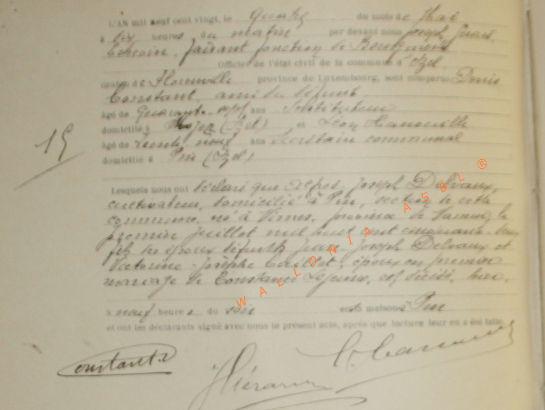 L'AN mil neuf cent vingt, le quatre du mois de Mai
à dix heures du matin par devant nous Joseph
Echevin, faisant fonction de Bourgmestre
Officier de l'état civil de la commune d'Izel
canton de Florenville province de Luxembourg, sont comparus Denis
Constant, ami du défunt
âgé de quarante sept ans Instituteur
domicilié à (Izel) et Léon Hanouille
âgé de trente neuf ans Secrétaire communal
domicilié à Pin (Izel)
15
Lesquels nous ont déclaré que Joseph Delvaux,
cultivateur, domicilié à Pin, section de cette
commune, né à Vimes, province de Namur, le
premier juillet mil huit cent cinquante
fils des époux défunts Jean Joseph Delvaux et
Victorine Josèphe époux en premier
mariage de Constance Lejeune, est décédé hier
à neuf heures du soir en sa maison à Pin
et ont les déclarants signé avec nous le présent acte, après que lecture leur en a été faite.
WALLONIA ASBL ®
Constant D